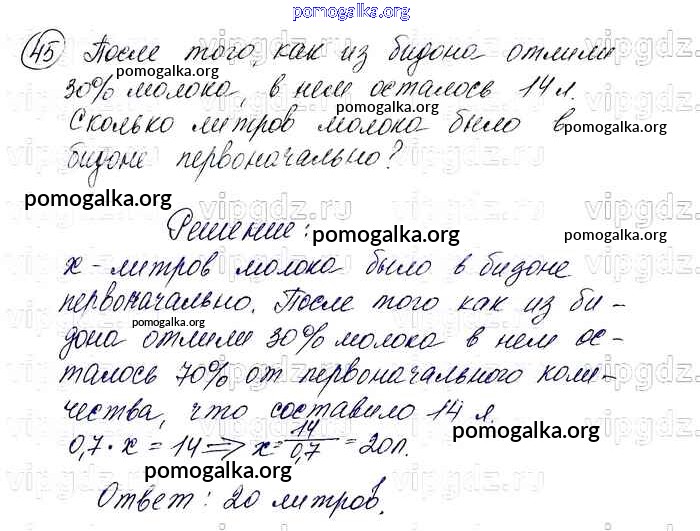 pomogalka.org
45 После того, как из бидона отлили
pomogalka.org
30% молока, в нем осталось 14 л.
pomogalka.org
Сколько литров молока было в
pomogalka.org
бидоне первоначально?
pomogalka.org
vipgdz.ru
Решение:
pomogalka.org
pomogalka.org
x - литров молока было в бидоне
первоначально. После того как из би-
pomogalka.org
дона отлили 30% молока в нем ос-
талось 70% от первоначального коли-
чества, что составило 14 л.
pomogalka.org
0,7 · x = 14 ⇒ x = 14/0,7 = 20л.
pomogalka.org
Ответ: 20 литров.
pomogalka.org